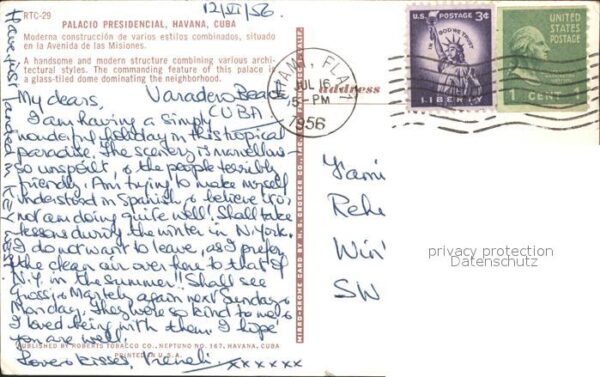 RTC-29
12/VII/56.
PALACIO PRESIDENCIAL, HAVANA, CUBA
Moderna construcción de varios estilos combinados, situado
en la Avenida de las Misiones.
A handsome and modern structure combining various archi-
tectural styles. The commanding feature of this palace is
a glass-tiled dome dominating the neighborhood.
My dears, Varadero Beach
CUBA
I am having a simply
wonderful holiday in this tropical
paradise. The scenery is marvellous
so unspoilt, & the people terribly
friendly. Am trying to make myself
understood in Spanish, & believe it or
not am doing quite well! Shall take
lessons during the winter in N.York.
I do not want to leave, as I prefer
the clean air over here to that of
N.Y. in the summer! Shall see
again next Sunday &
Monday. They were so kind to me &
I loved being with them. I hope
you are well.
Love & kisses,
xxxxxx
Have just landed in Key West
PUBLISHED BY ROBERTS TOBACCO CO., NEPTUNO NO. 167, HAVANA, CUBA
PRINTED IN U.S.A.
MIRRO-KROME CARD BY H. S. CROCKER CO., INC.
MIAMI, FLA.
JUL 16
5 - PM
1956
address
U.S. POSTAGE 3¢
IN GOD WE TRUST
LIBERTY
UNITED
STATES
POSTAGE
1 CENT 1
Fami
Rehe
Win
SW
privacy protection
Datenschutz